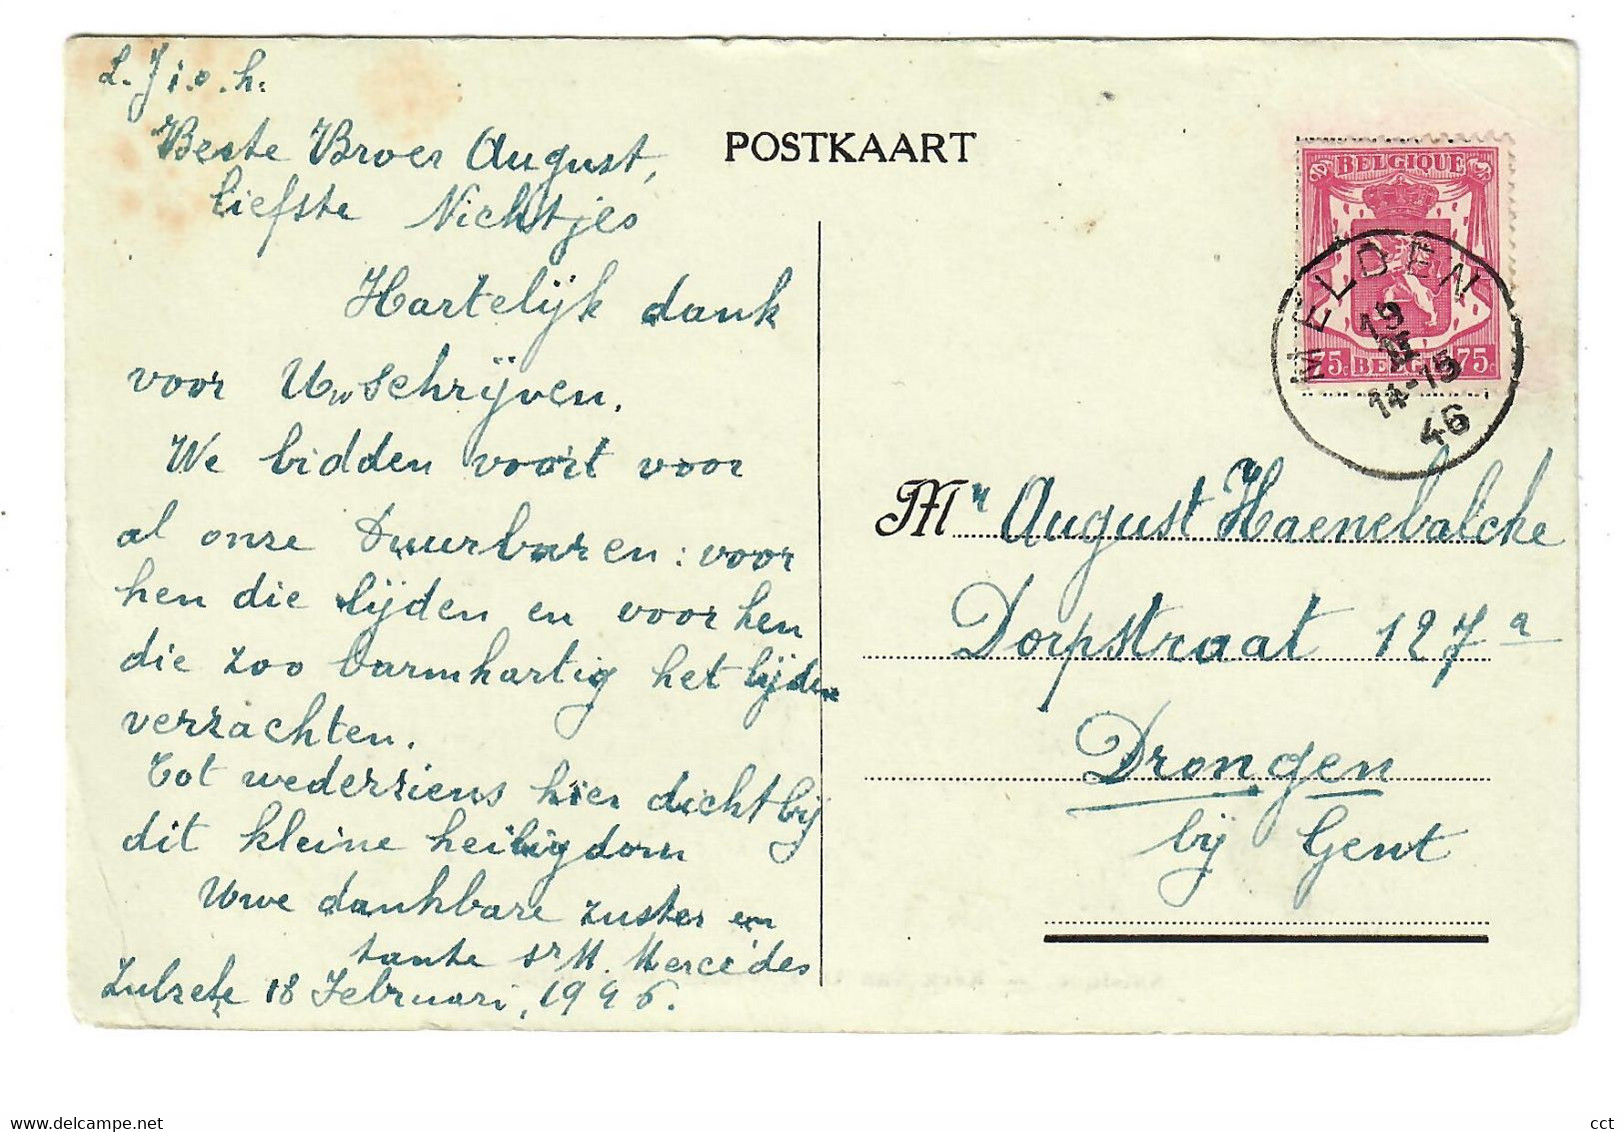 L. J. i. o. h.
Beste Broer August,
liefste Nichtjes
Hartelijk dank
voor Uw schrijven.
We bidden voort voor
al onze Duurbaren: voor
hen die lijden en voor hen
die zoo barmhartig het lijden
verzachten.
Tot wederziens hier dicht bij
dit kleine heiligdom
Uwe dankbare zuster en
tante Sr M. Mercédes
Zulzeke 18 Februari, 1946.
POSTKAART
BELGIQUE
75c BELGIE 75c
MELDEN
19
14-15
46
Mr August Haenebalcke
Dorpstraat 127a
Drongen
bij Gent
www.delcampe.net
cct